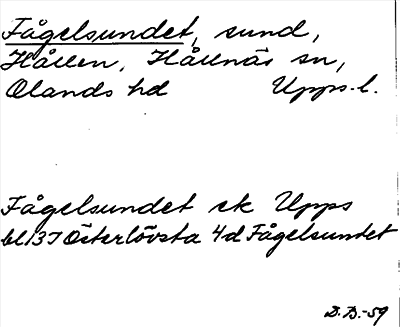 Fågelsundet, sund,
Hållen, Hållnäs sn,
Olands hd Upps. l.
Fågelsundet ek Upps
bl 137 Österlövsta 4d Fågelsundet
D.B.-59